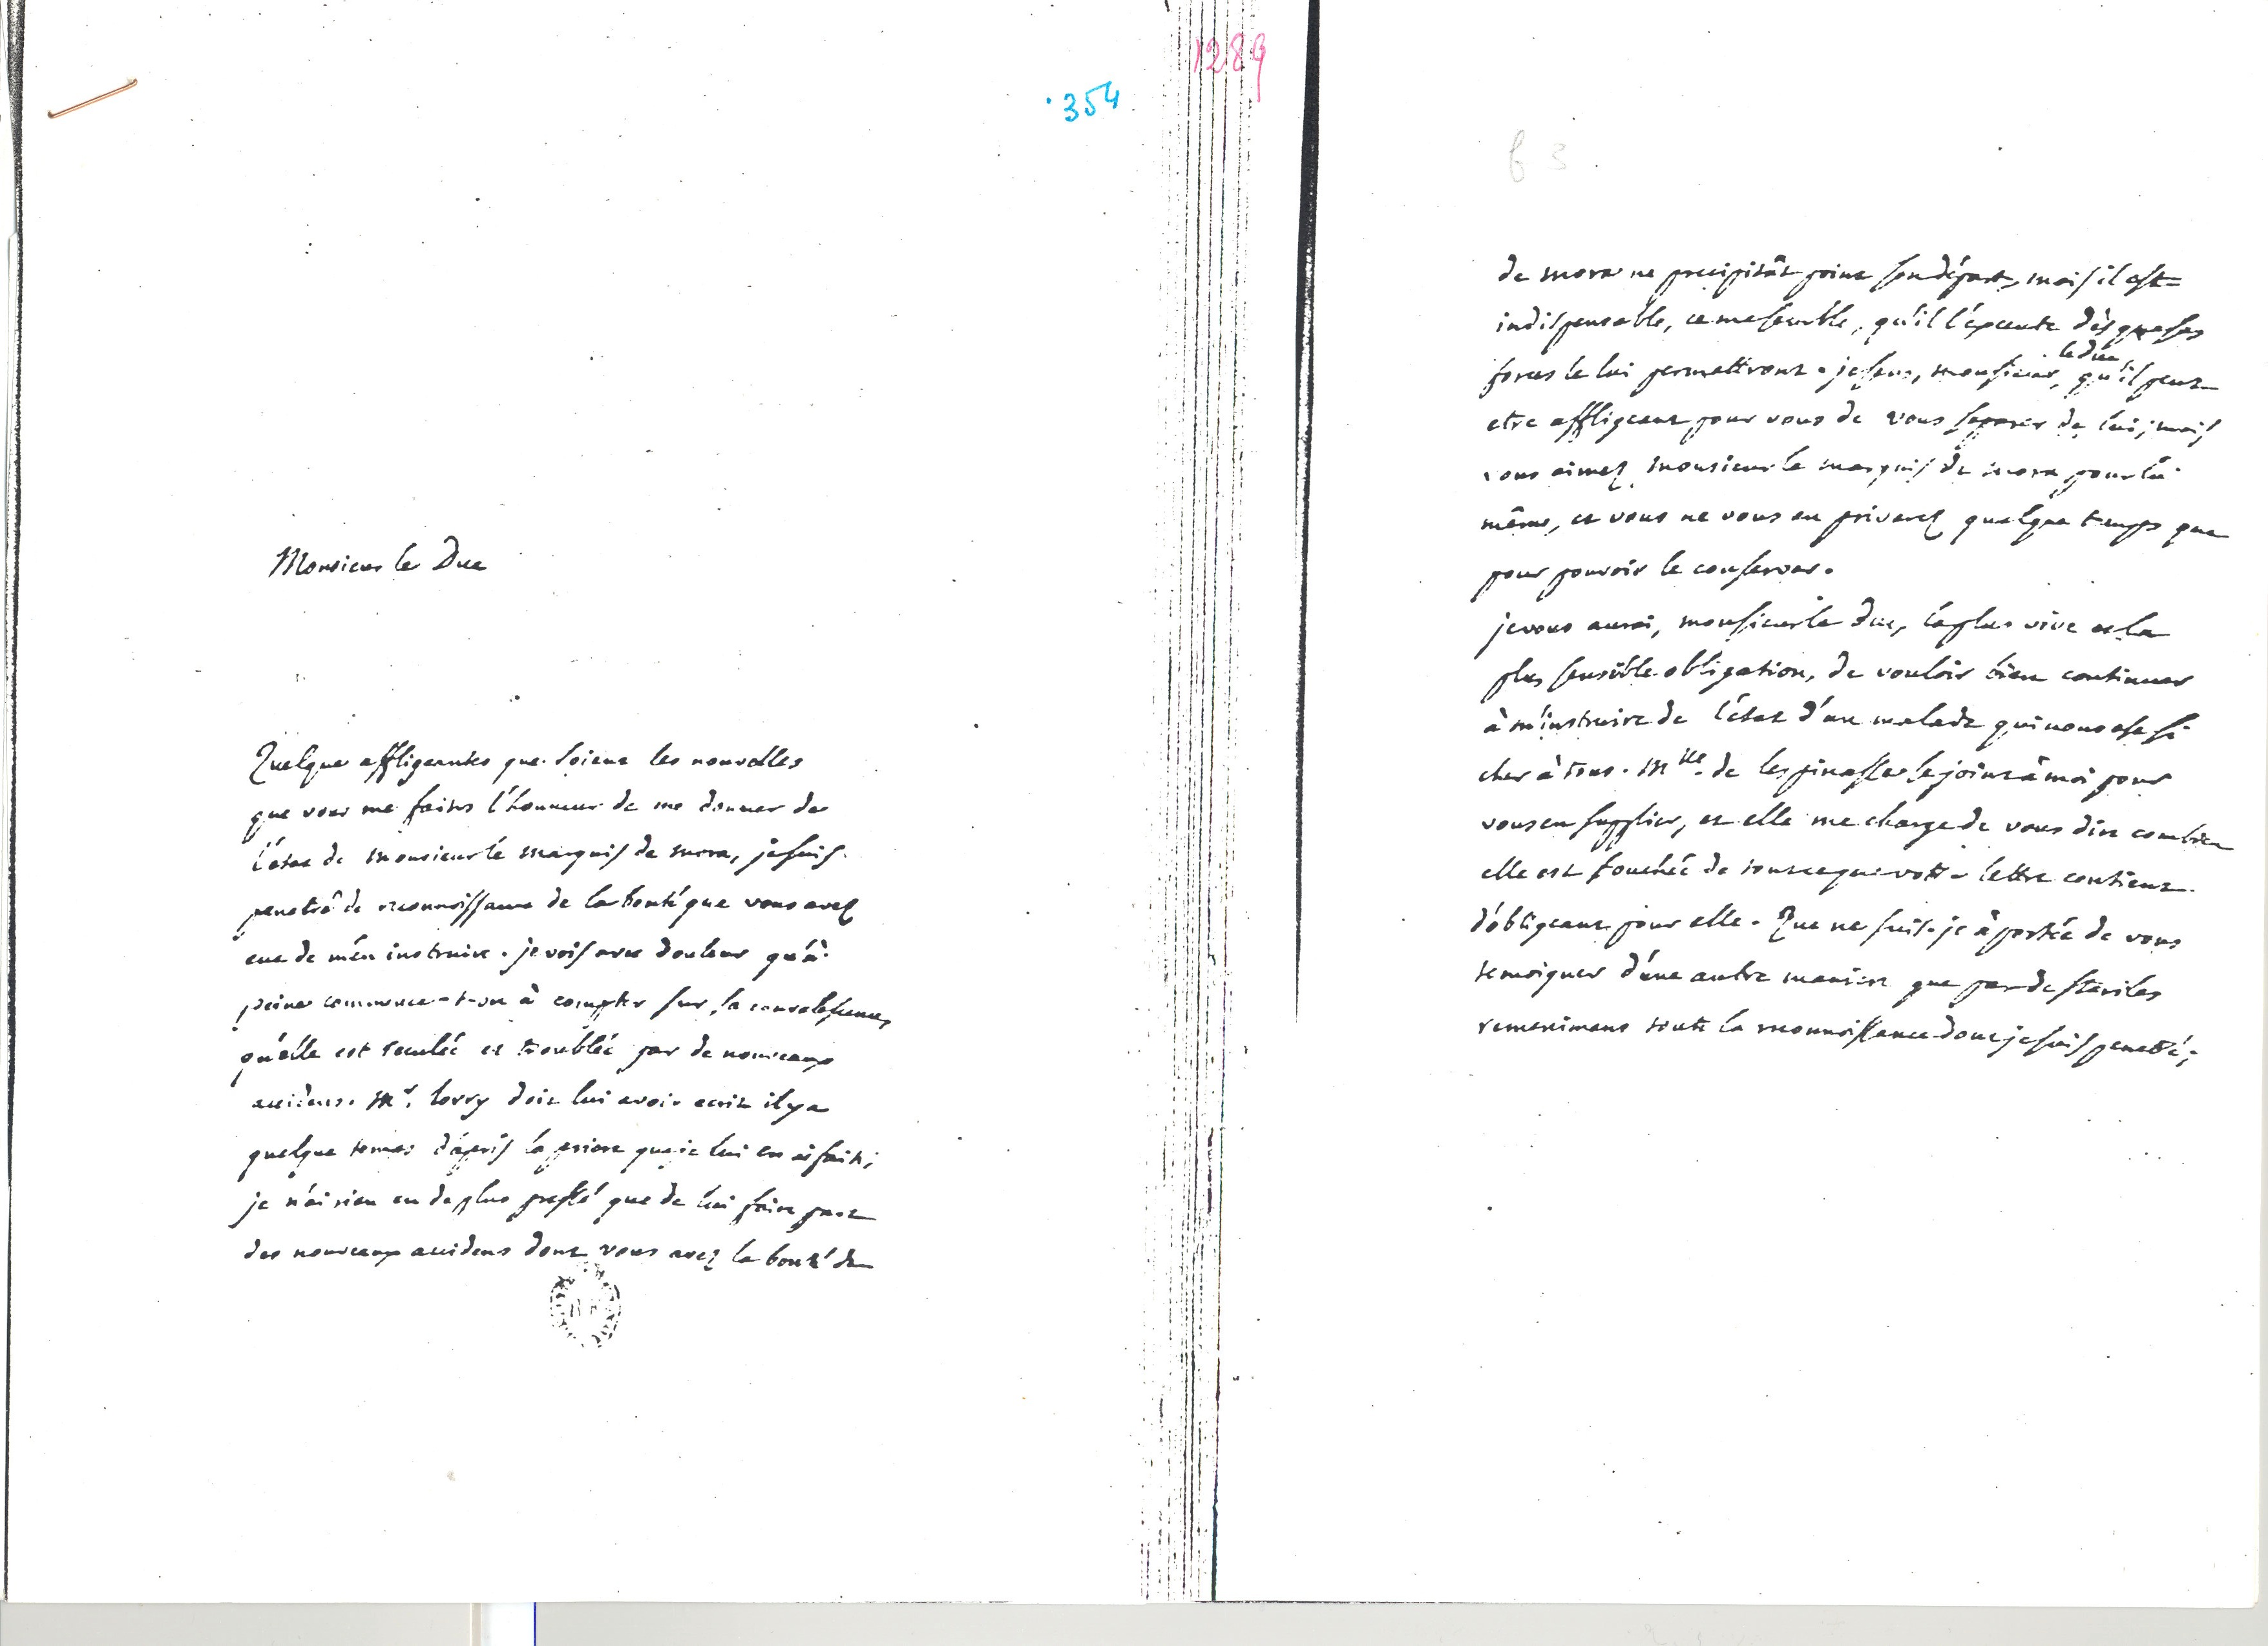 1289
354
63
Monsieur le Duc
Quelque affligeantes que soient les nouvelles
que vous me faites l'honneur de me donner de
l'état de monsieur le marquis de mora, je suis
penetré de reconnoissance de la bonté que vous avez
eue de m'en instruire. je vois avec douleur qu'à
peine commence-t-on à compter sur sa convalescence,
qu'elle est reculée et troublée par de nouveaux
accidens. Mr. lorry doit lui avoir ecrit il y a
quelque temps d'après la priere que je lui en ai faite;
je n'ai rien eu de plus pressé que de lui faire part
des nouveaux accidens dont vous avez la bonté de
de mora ne precipitât point son départ, mais il est
indispensable, ce me semble, qu'il l'execute dès que ses
forces le lui permettront. je sens, monsieur le duc, qu'il peut
etre affligeant pour vous de vous separer de lui; mais
vous aimez monsieur le marquis de mora pour lui
même, et vous ne vous en priverez quelque temps que
pour pouvoir le conserver.
je vous aurai, monsieur le duc, la plus vive et la
plus sensible obligation, de vouloir bien continuer
à m'instruire de l'état d'un malade qui nous est si
cher à tous. Mlle. de lespinasse se joint à moi pour
vous en supplier, et elle me charge de vous dire combien
elle est touchée de tout ce que votre lettre contient
d'obligeant pour elle. Que ne suis-je à portée de vous
temoigner d'une autre maniere que par de steriles
remercimens toute la reconnoissance dont je suis penetré;